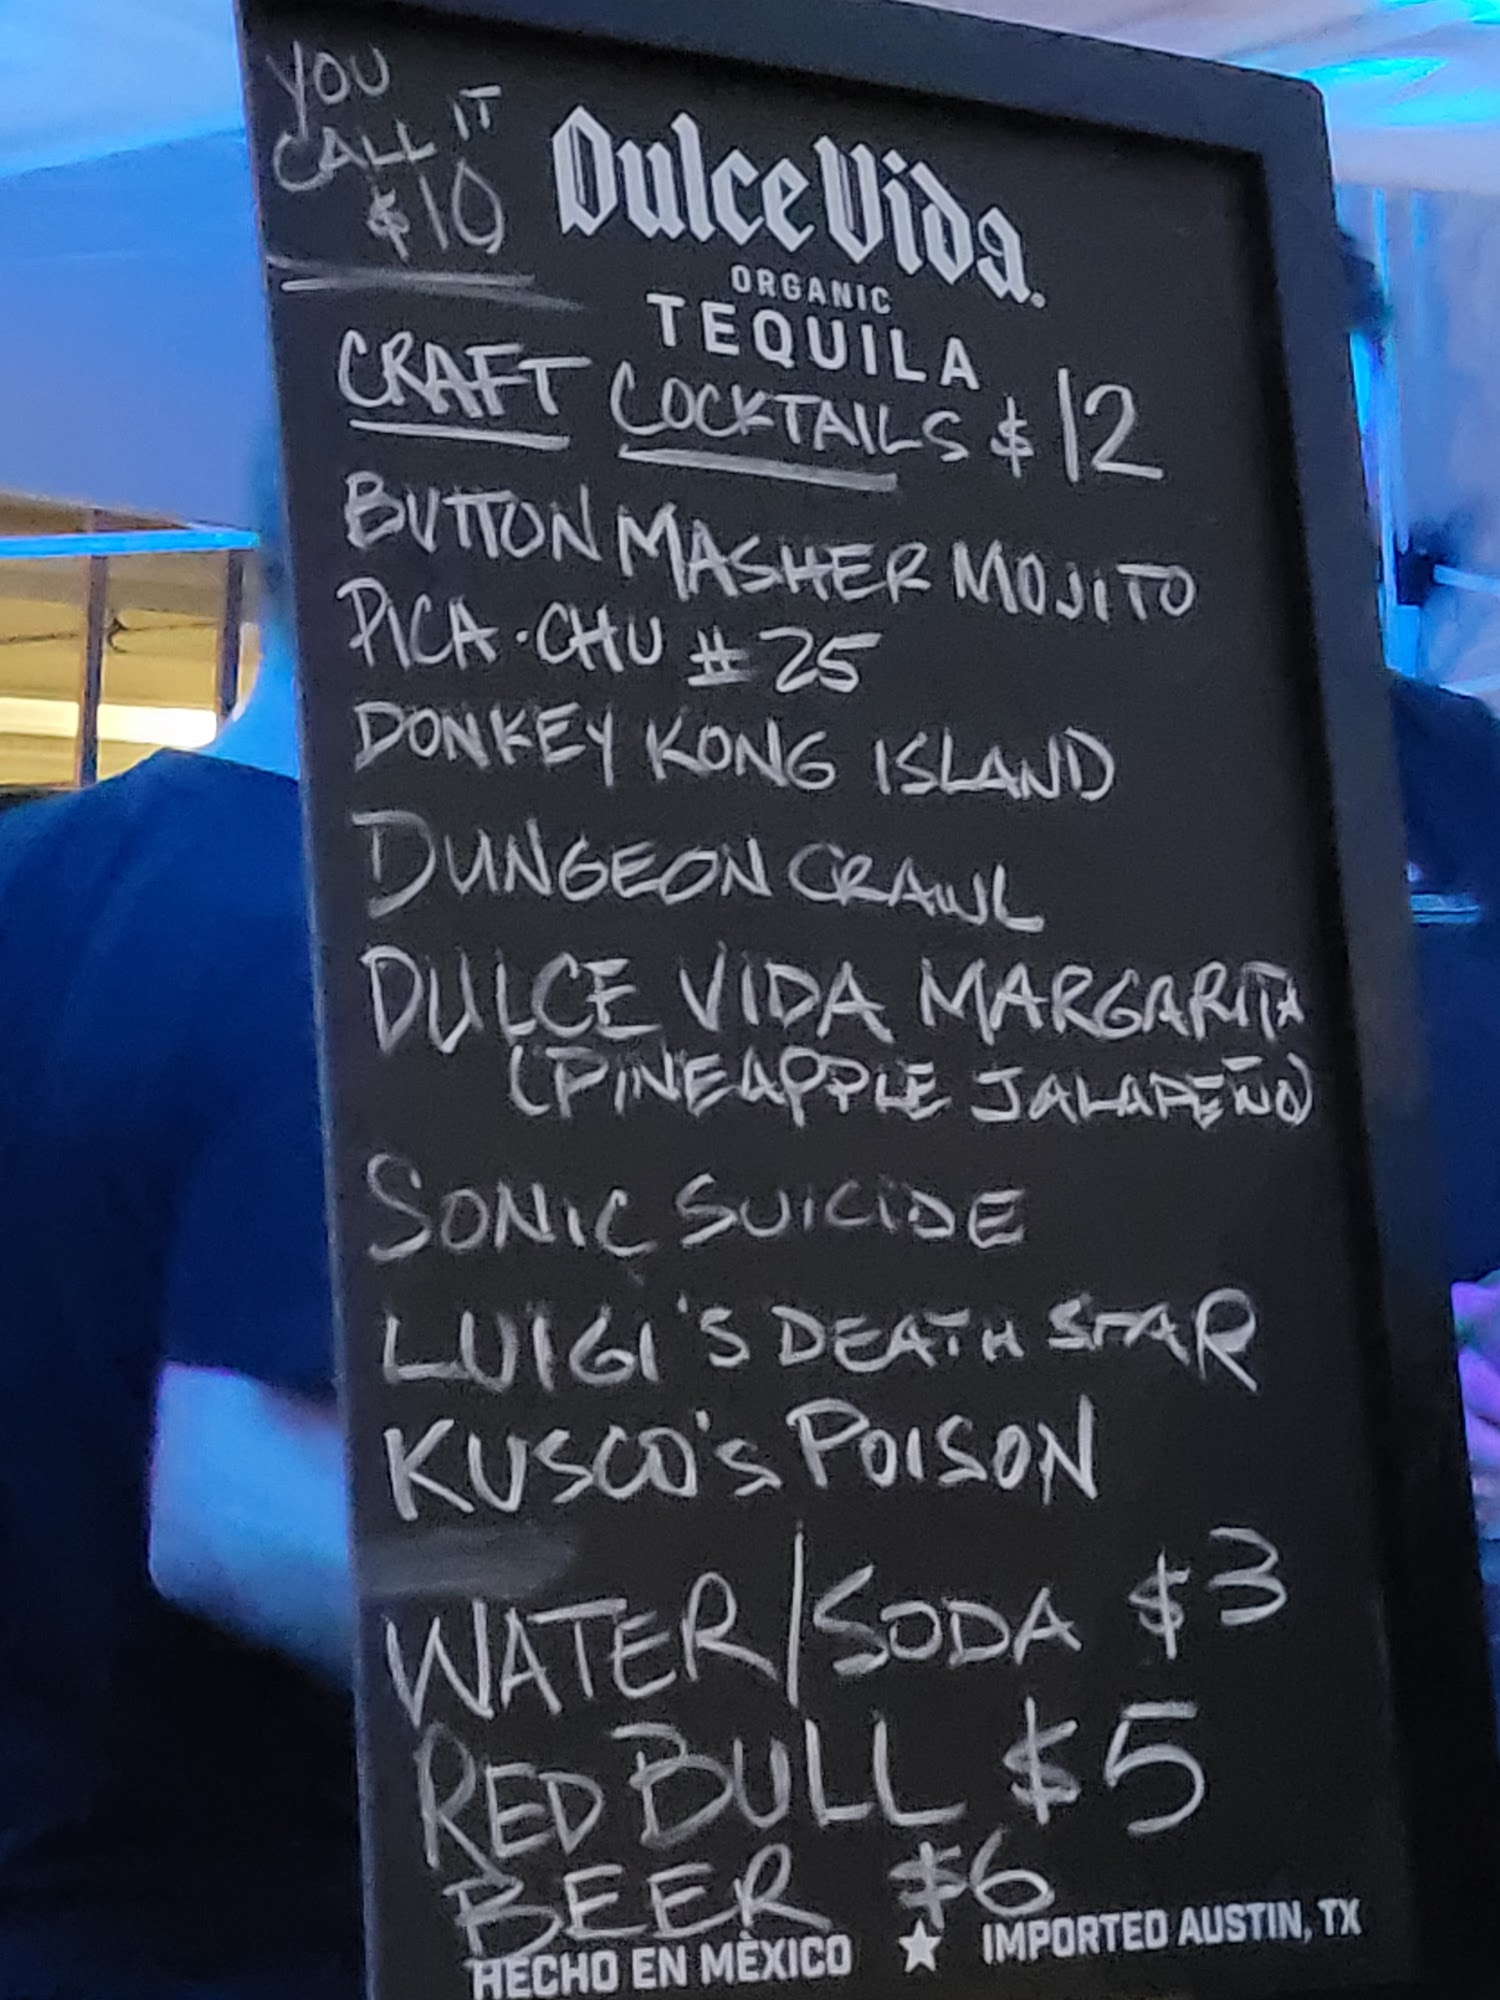 YOU
CALL IT
$10
Dulce Vida.
ORGANIC
TEQUILA
CRAFT COCKTAILS $12
BUTTON MASHER MOJITO
PICA·CHU #25
DONKEY KONG ISLAND
DUNGEON CRAWL
DULCE VIDA MARGARITA
(PINEAPPLE JALAPEÑO)
SONIC SUICIDE
LUIGI'S DEATH STAR
KUSCO'S POISON
WATER/SODA $3
RED BULL $5
BEER $6
HECHO EN MÈXICO ★ IMPORTED AUSTIN, TX